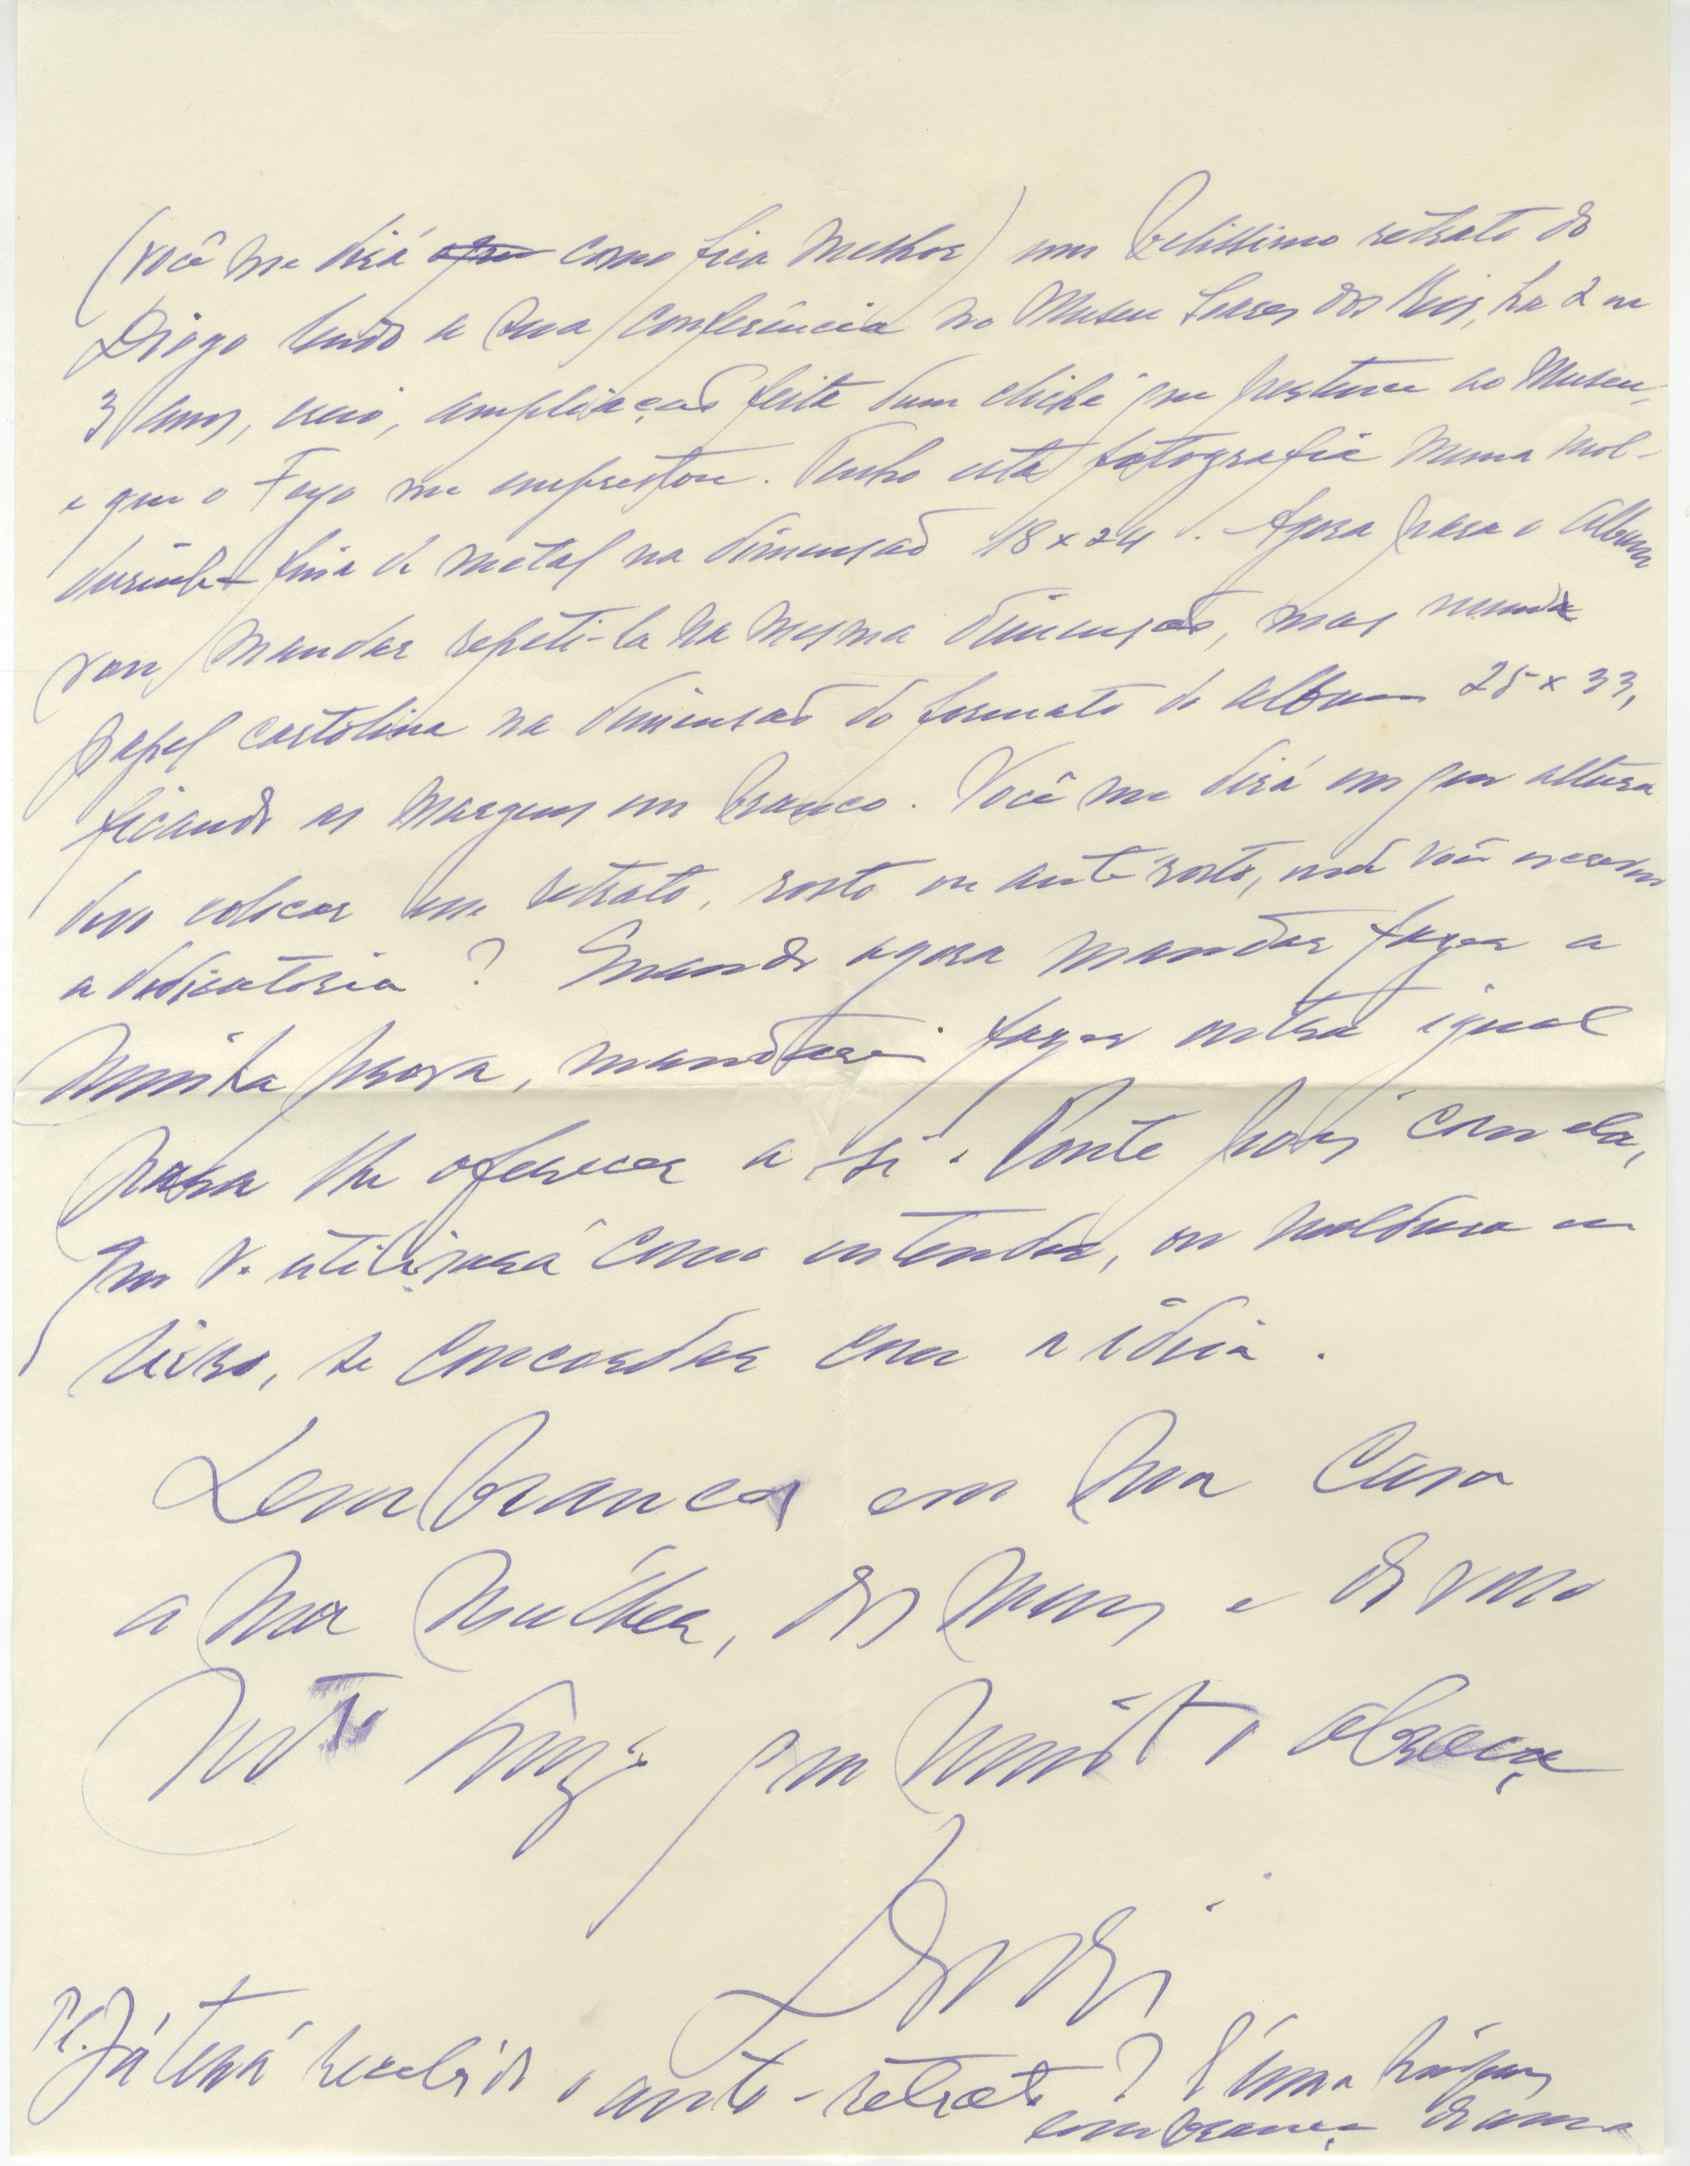 (Você me dirá que como fica melhor) um belissimo retrato do
Diogo lendo a sua conferência no Museu Soares dos Reis, ha 2 ou
3 anos, creio, ampliação feita dum cliché que pertence ao Museu,
e que o Foyo me emprestou. Tenho esta fotografia numa mol-
durinha fina de metal na dimensão 18 x 24. Agora para o Album
vou mandar repeti-la na mesma dimensão, mas numa
papel cartolina na dimensão do formato do album 25 x 33,
ficando as margens em branco. Você me dirá em que altura
devo colocar esse retrato, rosto ou ante rosto, onde Você escreveu
a dedicatoria? Quando agora mandar fazer a
minha prova, mandarei fazer outra igual
para lhe oferecer a si. Conte pois com ela,
que V. utilizará como entender, ou moldura ou
livro, se concordar com a ideia.
Lembranças em sua casa
a sua mulher, dos meus e do vosso
mto amigo que muito abraça
P.S. Já terá recebido o auto-retrato? É uma
lembrança de uma